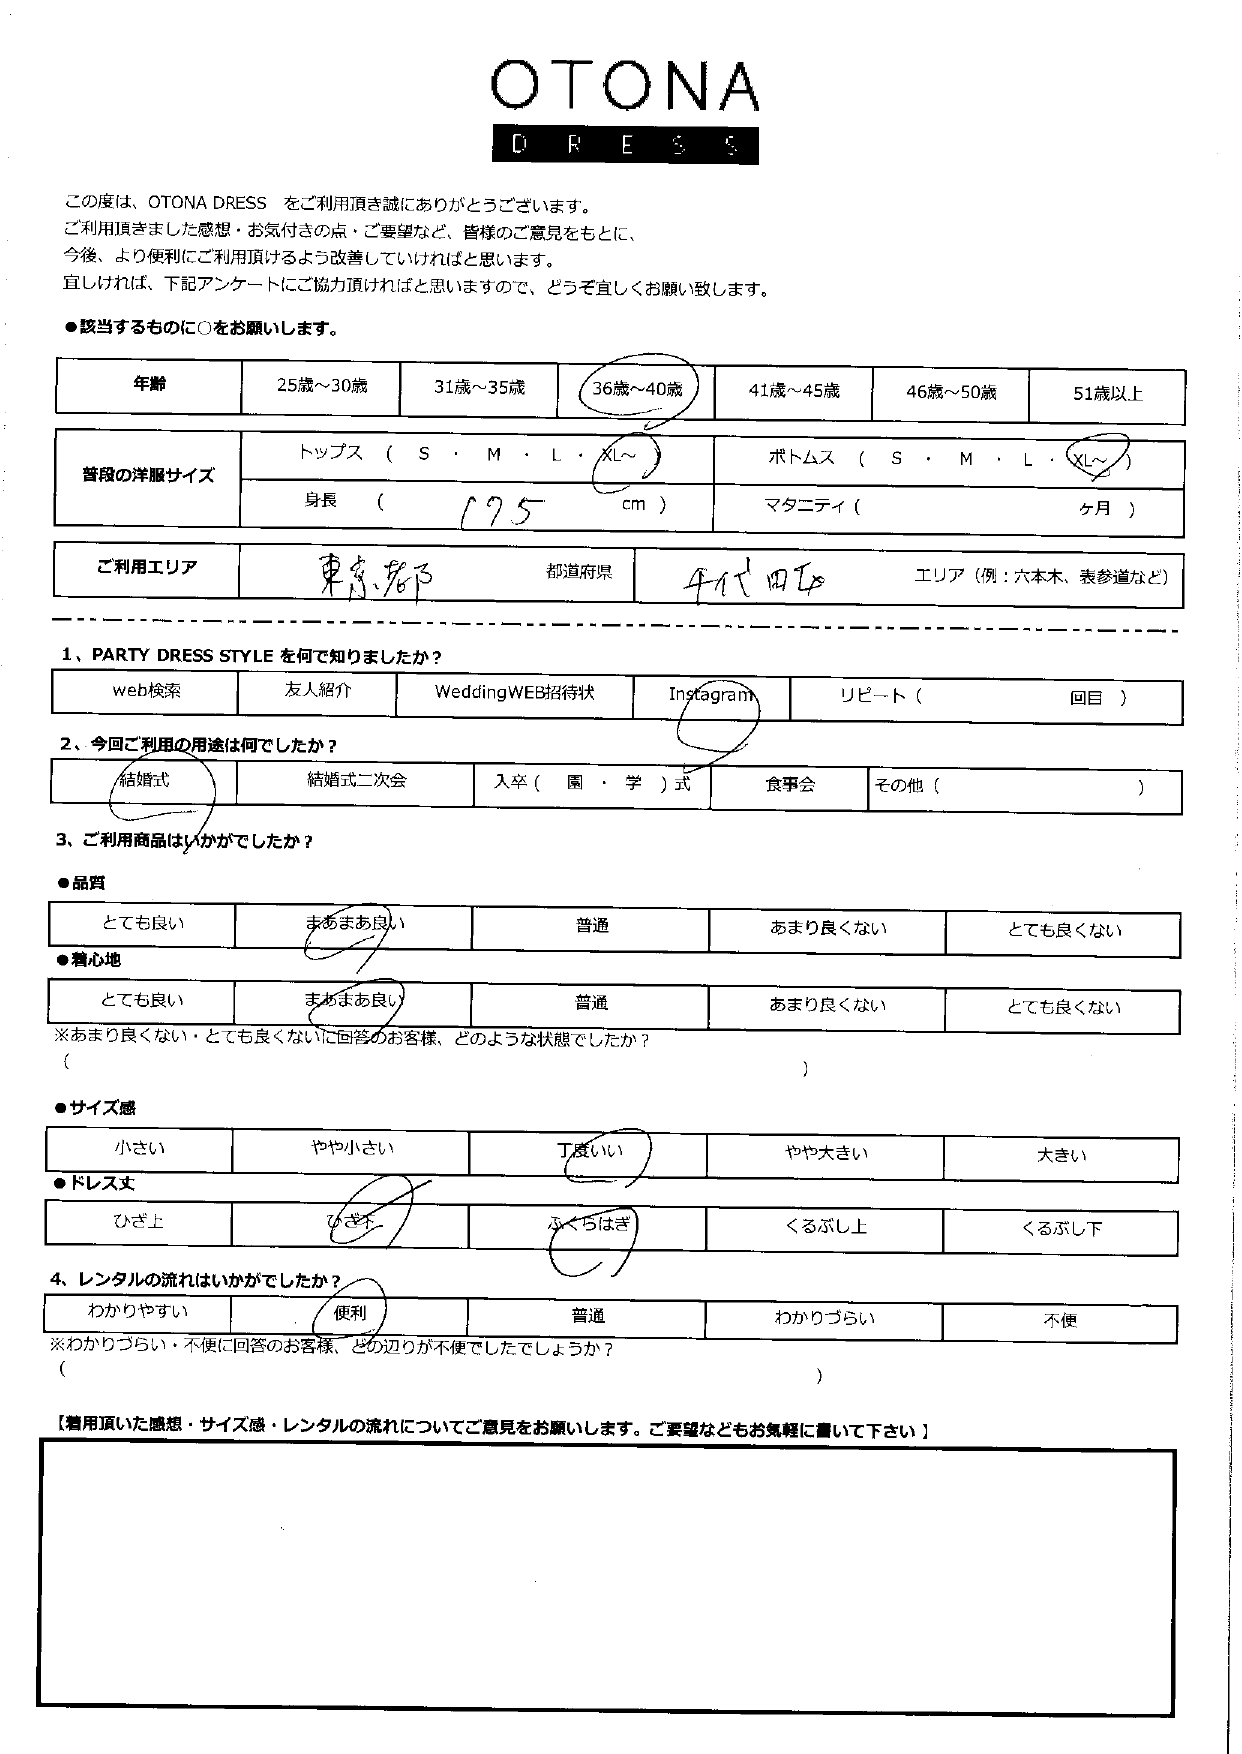 OTONA
DRESS
この度は、OTONA DRESS をご利用頂き誠にありがとうございます。
ご利用頂きました感想・お気付きの点・ご要望など、皆様のご意見をもとに、
今後、より便利にご利用頂けるよう改善していければと思います。
宜しければ、下記アンケートにご協力頂ければと思いますので、どうぞ宜しくお願い致します。
●該当するものに○をお願いします。
年齢 25歳～30歳 31歳～35歳 36歳～40歳 41歳～45歳 46歳～50歳 51歳以上
普段の洋服サイズ トップス ( S ・ M ・ L ・ XL～ ) ボトムス ( S ・ M ・ L ・ XL～ )
身長 ( 175 cm ) マタニティ ( ヶ月 )
ご利用エリア 東京都 都道府県 千代田区 エリア（例：六本木、表参道など）
1、PARTY DRESS STYLE を何で知りましたか？
web検索 友人紹介 WeddingWEB招待状 Instagram リピート ( 回目 )
2、今回ご利用の用途は何でしたか？
結婚式 結婚式二次会 入卒 ( 園 ・ 学 ) 式 食事会 その他 ( )
3、ご利用商品はいかがでしたか？
●品質
とても良い まあまあ良い 普通 あまり良くない とても良くない
●着心地
とても良い まあまあ良い 普通 あまり良くない とても良くない
※あまり良くない・とても良くないに回答のお客様、どのような状態でしたか？
( )
●サイズ感
小さい やや小さい 丁度いい やや大きい 大きい
●ドレス丈
ひざ上 ひざ下 ふくらはぎ くるぶし上 くるぶし下
4、レンタルの流れはいかがでしたか？
わかりやすい 便利 普通 わかりづらい 不便
※わかりづらい・不便に回答のお客様、どの辺りが不便でしたでしょうか？
( )
【着用頂いた感想・サイズ感・レンタルの流れについてご意見をお願いします。ご要望などもお気軽に書いて下さい 】